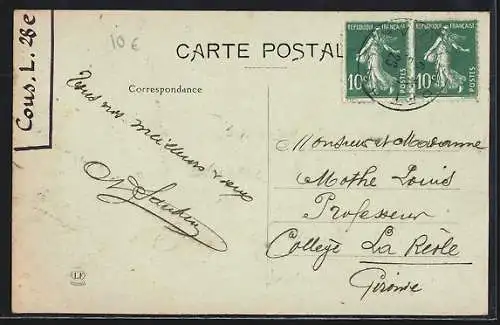 Cous. L. 28e
10 €
CARTE POSTAL
Correspondance
REPUBLIQUE FRANÇAISE
10c POSTES
REPUBLIQUE FRANÇAISE
10c POSTES
Tous nos meilleurs vœux
Monsieur et Madame
Mothe Louis
Professeur
Collège La Réole
Gironde
LF